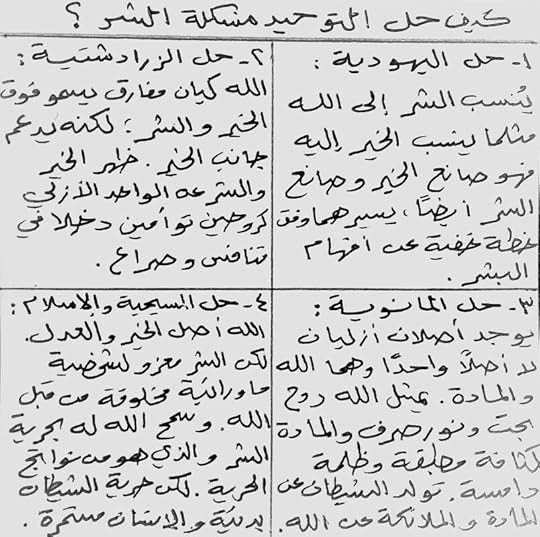 كيف حل التوحيد مشكلة الشر ؟
١- حل اليهودية :
يُنسب الشر إلى الله
مثلما ينسب الخير إليه
فهو صانع الخير وصانع
الشر أيضًا، يسيرهما وفق
خطة خفية عن أفهام
البشر .
٢- حل الزرادشتية :
الله كيان مفارق يسمو فوق
الخير والشر ؛ لكنه يدعم
جانب الخير . ظهر الخير
والشر عن الواحد الأزلي
كروحين توأمين دخلا في
تنافس وصراع .
٣- حل المانوية :
يوجد أصلان أزليان
لا أصلاً واحدًا وهما الله
والمادة . يمثل الله روح
بحت ونور صرف والمادة
كثافة مطبقة وظلمة
دامسة . تولد الشيطان عن
المادة والملائكة عن الله .
٤- حل المسيحية والإسلام :
الله أصل الخير والعدل .
لكن الشر معزو لشخصية
ماورائية مخلوقة من قبل
الله . وسمح الله له بحرية
الشر والذي هو من نواتج
الحرية . لكن حرية الشيطان
بدئية والإنسان مستمرة .